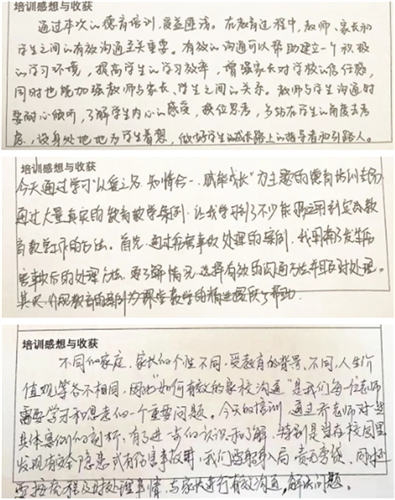 培训感想与收获
通过本次的德育培训,受益匪浅。在教育过程中,教师、家长和
学生之间的有效沟通至关重要。有效的沟通可以帮助建立一个积极
的学习环境,提高学生的学习效率,增强家长对学校的信任感,
同时也能加强教师与家长、学生之间的关系。教师与学生沟通时
要耐心倾听,了解学生内心的感受,换位思考,多站在学生的角度去考
虑,设身处地地为学生着想,做好学生的成长路上的指导者和引路人。
培训感想与收获
今天通过学习“以爱之名 知情合一,赋能成长”为主题的德育培训活动
通过大量真实的教育教学案例,让我学到了不少能够运用到实际教
育教学工作的方法。首先,通过伤害事故处理的案例,我明确了发生伤
害事故后的处理方法,要了解情况,选择有效的沟通方法并且及时处理。
培训感想与收获
不同的家庭,家长们个性不同,受教育的背景不同,人生价
值观等各不相同,因此“如何有效的家校沟通”是我们每一位老师
需要学习和思考的一个重要问题。今天的培训,通过齐老师对些
具体案例的剖析,有了进一步的认识和了解,特别是当在校园里
发现有安全隐患或有伤害事故时,我们要
及时处理事情,与家长进行有效沟通,解决问题。